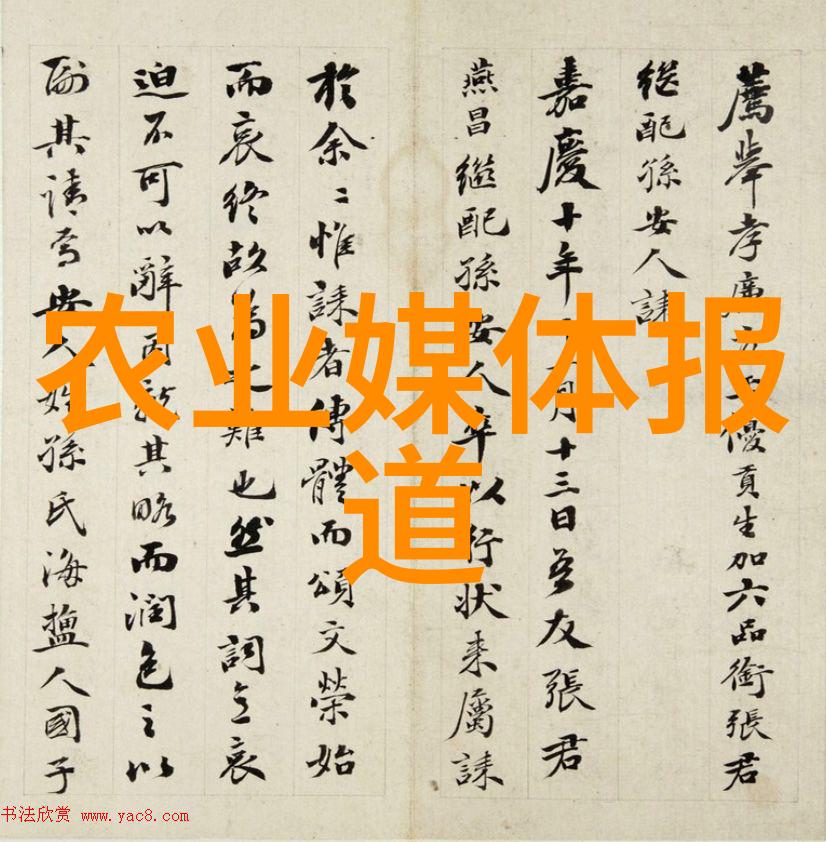 薦舉孝廉方正優貢生加六品銜張君
継配孫安人誄
嘉慶十年月十三日吾友張君
燕昌継配孫安人卒以行状来屬誄
於余〻惟誄者傳體而頌文榮始
而哀終故為之難也然其詞立哀
迫不可以辭因就其略而潤色之以
副其請焉安人姓孫氏海鹽人國子
农业媒体报
道
书法欣赏 www.yac8.com